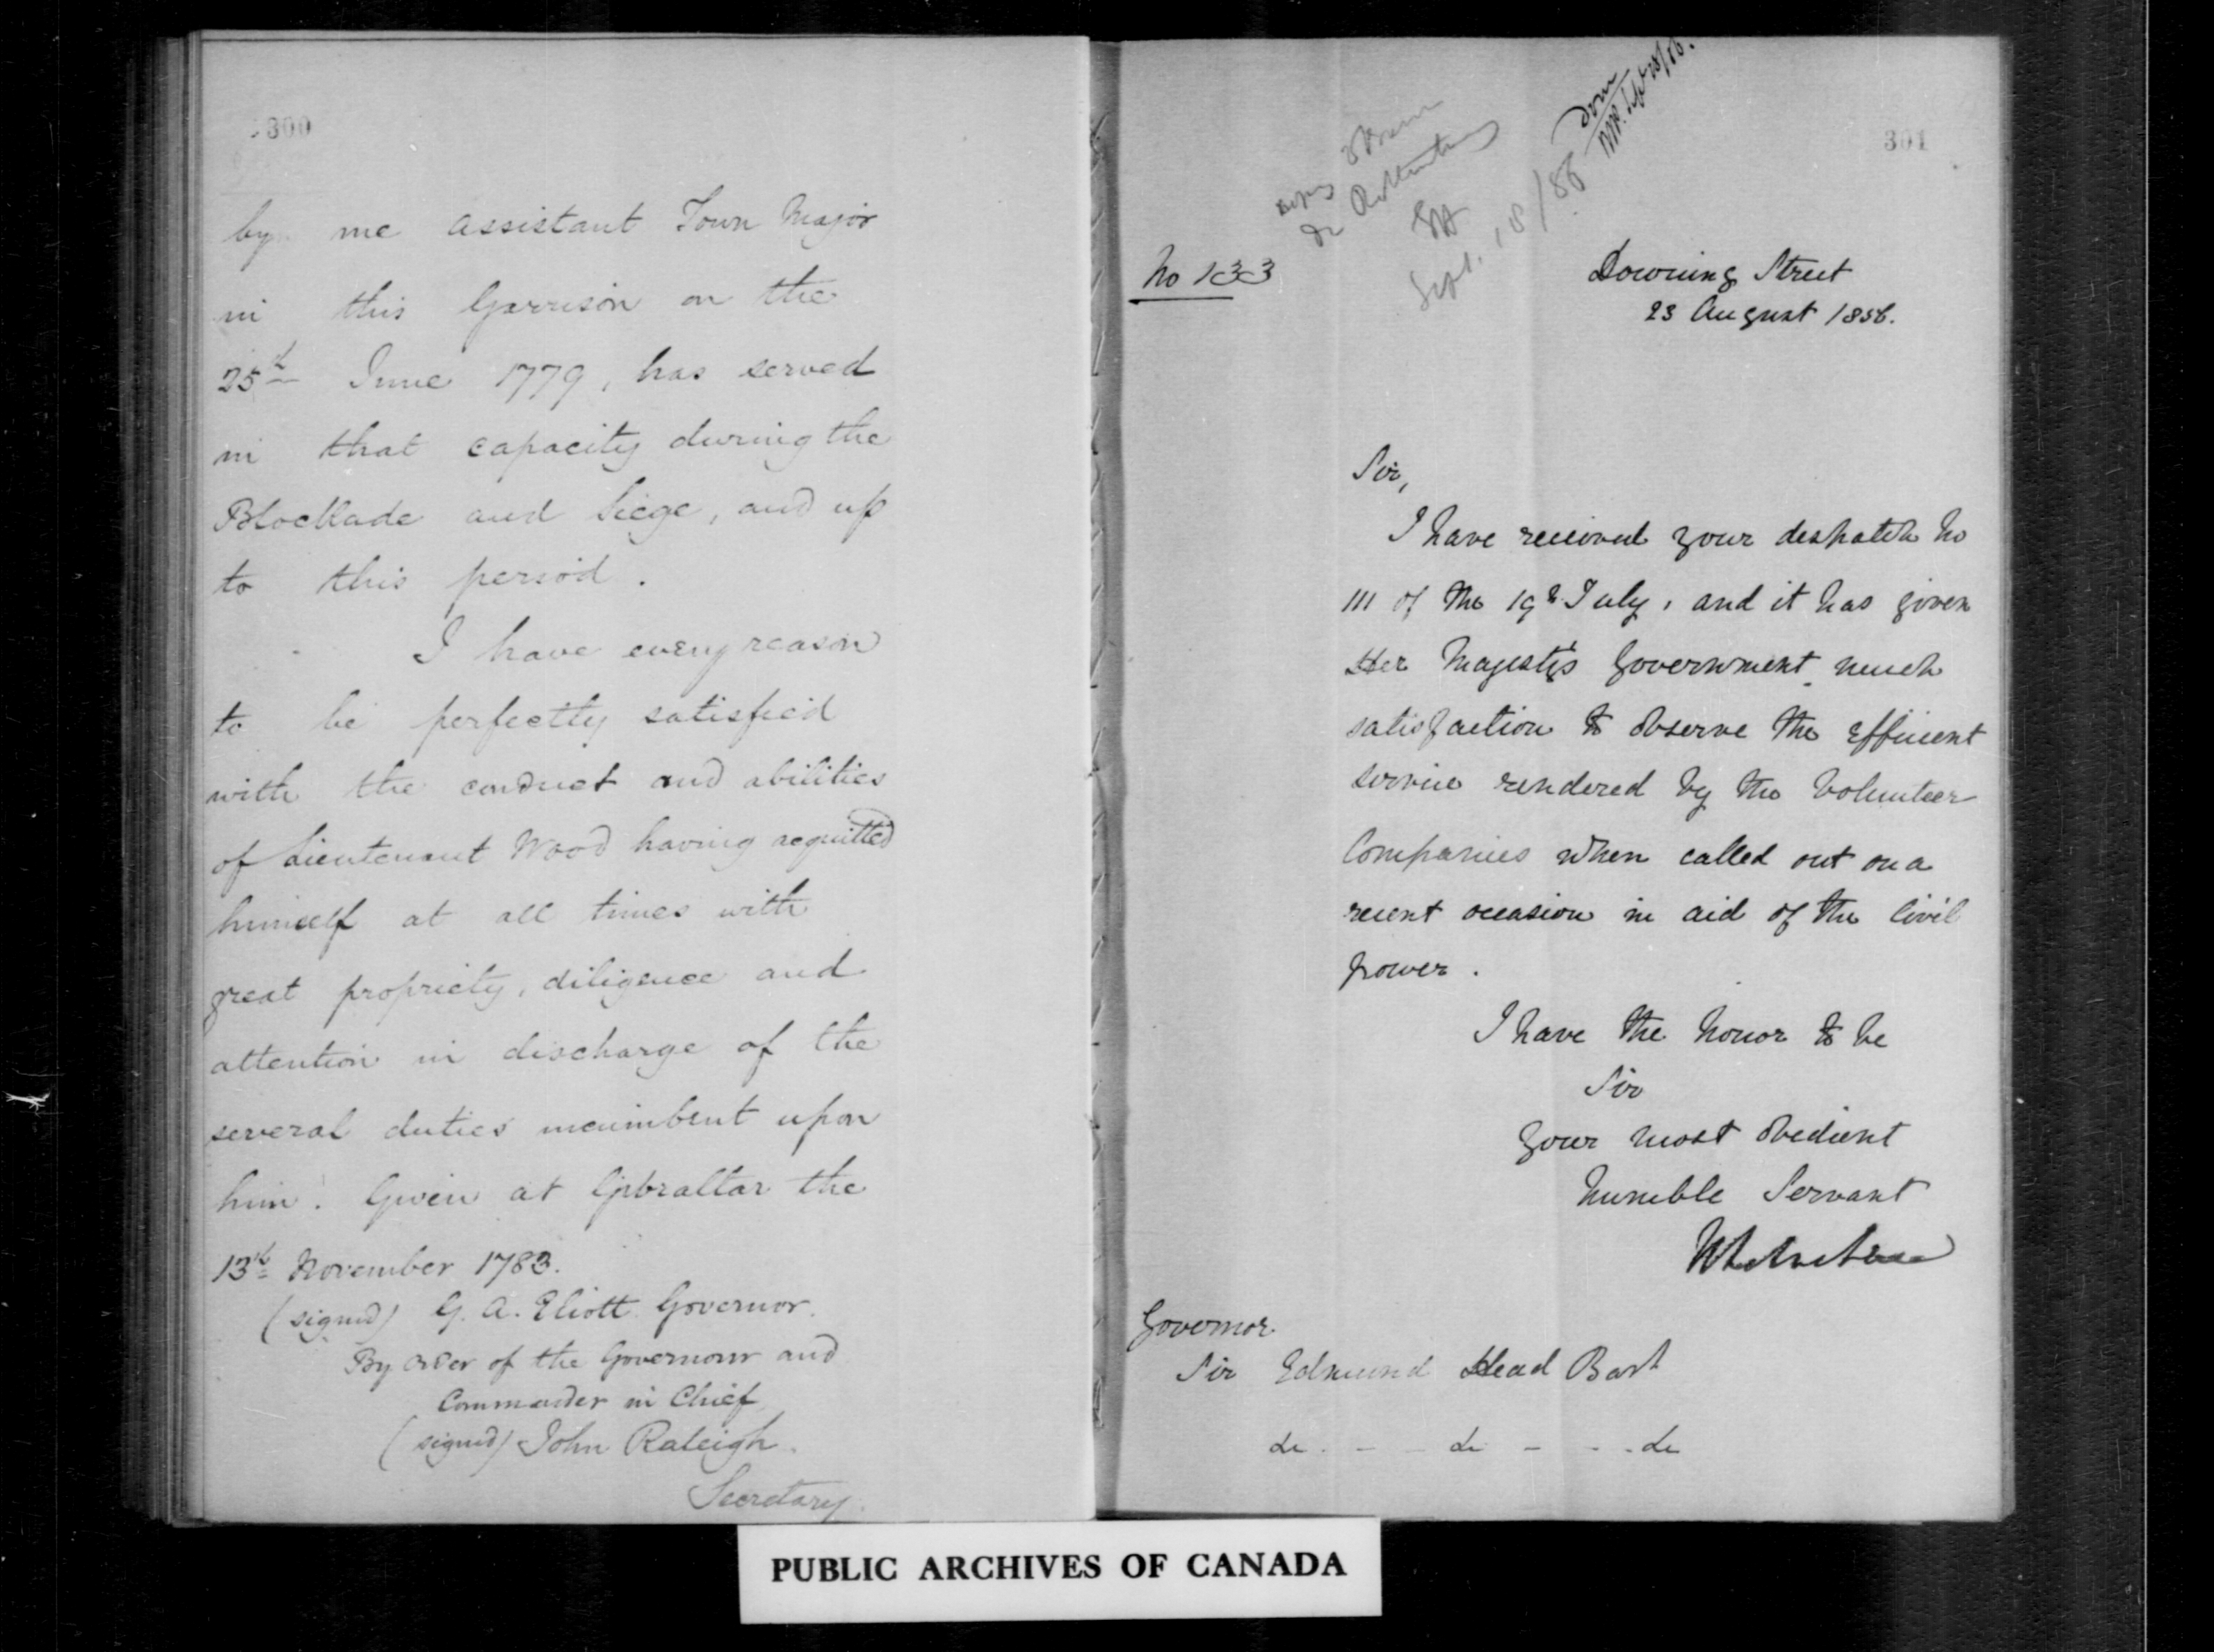 300
by me assistant Town Major
in this Garrison on the
25th June 1779, has served
in that capacity during the
Blockade and Siege, and up
to this period.
I have every reason
to be perfectly satisfied
with the conduct and abilities
of Lieutenant Wood having acquitted
himself at all times with
great propriety, diligence and
attention in discharge of the
several duties incumbent upon
him. Given at Gibraltar the
13th November 1783.
(signed) G. A. Eliott Governor.
By order of the Governour and
Commander in Chief
(signed) John Raleigh.
Secretary.
301
Sept. 18/56
No 133
Downing Street
23 August 1856.
Sir,
I have received your despatch No
111 of the 19th July, and it has given
Her Majesty's Government much
satisfaction to observe the efficient
service rendered by the Volunteer
Companies when called out on a
recent occasion in aid of the Civil
power.
I have the honor to be
Sir
Your most obedient
humble Servant
Governor
Sir Edmund Head Bart
&c. - - &c - - &c
PUBLIC ARCHIVES OF CANADA